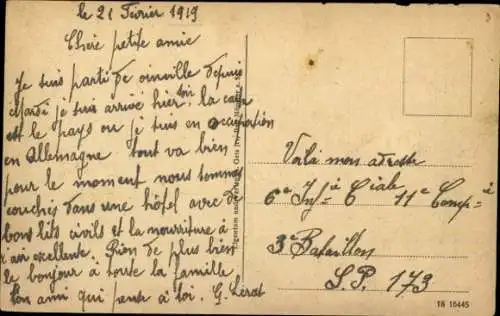 le 21 Fevrier 1919
Chère petite amie
Je suis parti de oinville depuis
Mardi je suis arrivé hier soir la
est le pays ou je suis en occupation
en Allemagne tout va bien
pour le moment nous sommes
couchés dans une hôtel avec de
bons lits civils et la nourriture à
excellente. Rien de plus bien
le bonjour à toute la famille
ton ami qui pense à toi. G.
Voilà mon adresse
6e Inf Ciale 11e Comp
3e Bataillon
S.P. 173
18 16445